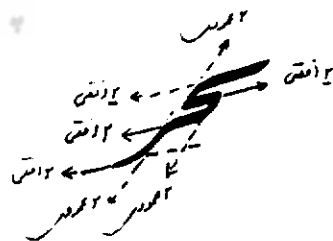 ٢ عمودی
٢ افقی
٢ افقی
٢ افقی
٢ افقی
٢ عمودی
٢ عمودی